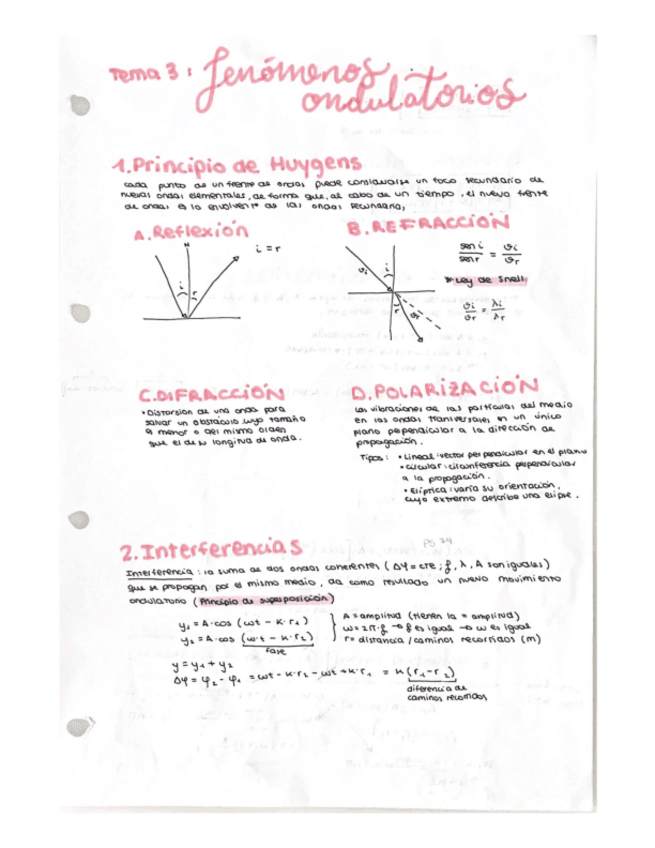 Tema 3: fenómenos
ondulatorios
1. Principio de Huygens
cada punto de un frente de ondas puede considerarse un foco secundario de
nuevas ondas elementales, de forma que, al cabo de un tiempo, el nuevo frente
de ondas es la envolvente de las ondas secundarias,
A. Reflexión
N
i = r
i
r
B. REFRACCIÓN
sen i / sen r = vi / vr
* Ley de Snell
vi / vr = λi / λr
vi
i
r
C. DIFRACCIÓN
• Distorsión de una onda para
salvar un obstáculo cuyo tamaño
es menor o del mismo orden
que el de su longitud de onda.
D. POLARIZACIÓN
Las vibraciones de las partículas del medio
en las ondas transversales en un único
plano perpendicular a la dirección de
propagación.
Tipos: • Lineal: vector perpendicular en el plano
• circular: circunferencia perpendicular
a la propagación.
• Elíptica: varía su orientación,
cuyo extremo describe una elipse.
2. Interferencias
Pg 74
Interferencia: la suma de dos ondas coherentes (Δφ = cte; f, λ, A son iguales)
que se propagan por el mismo medio, da como resultado un nuevo movimiento
ondulatorio (Principio de superposición)
y₁ = A·cos (ωt - K·r₁)
y₂ = A·cos (ω·t - K·r₂)
fase
A = amplitud (tienen la = amplitud)
ω = 2π·f → f es igual → ω es igual
r = distancia / caminos recorridos (m)
y = y₁ + y₂
Δφ = φ₂ - φ₁ = ωt - K·r₂ - ωt + K·r₁ = K(r₁ - r₂)
diferencia de
caminos recorridos